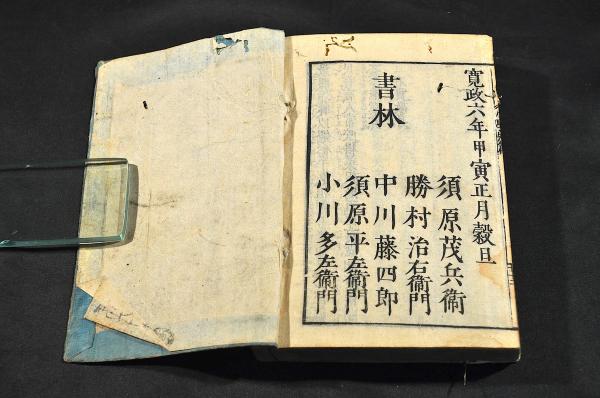 寛政六年甲寅正月穀旦
須原茂兵衞
勝村治右衞門
書林
中川藤四郎
須原平左衞門
小川多左衞門